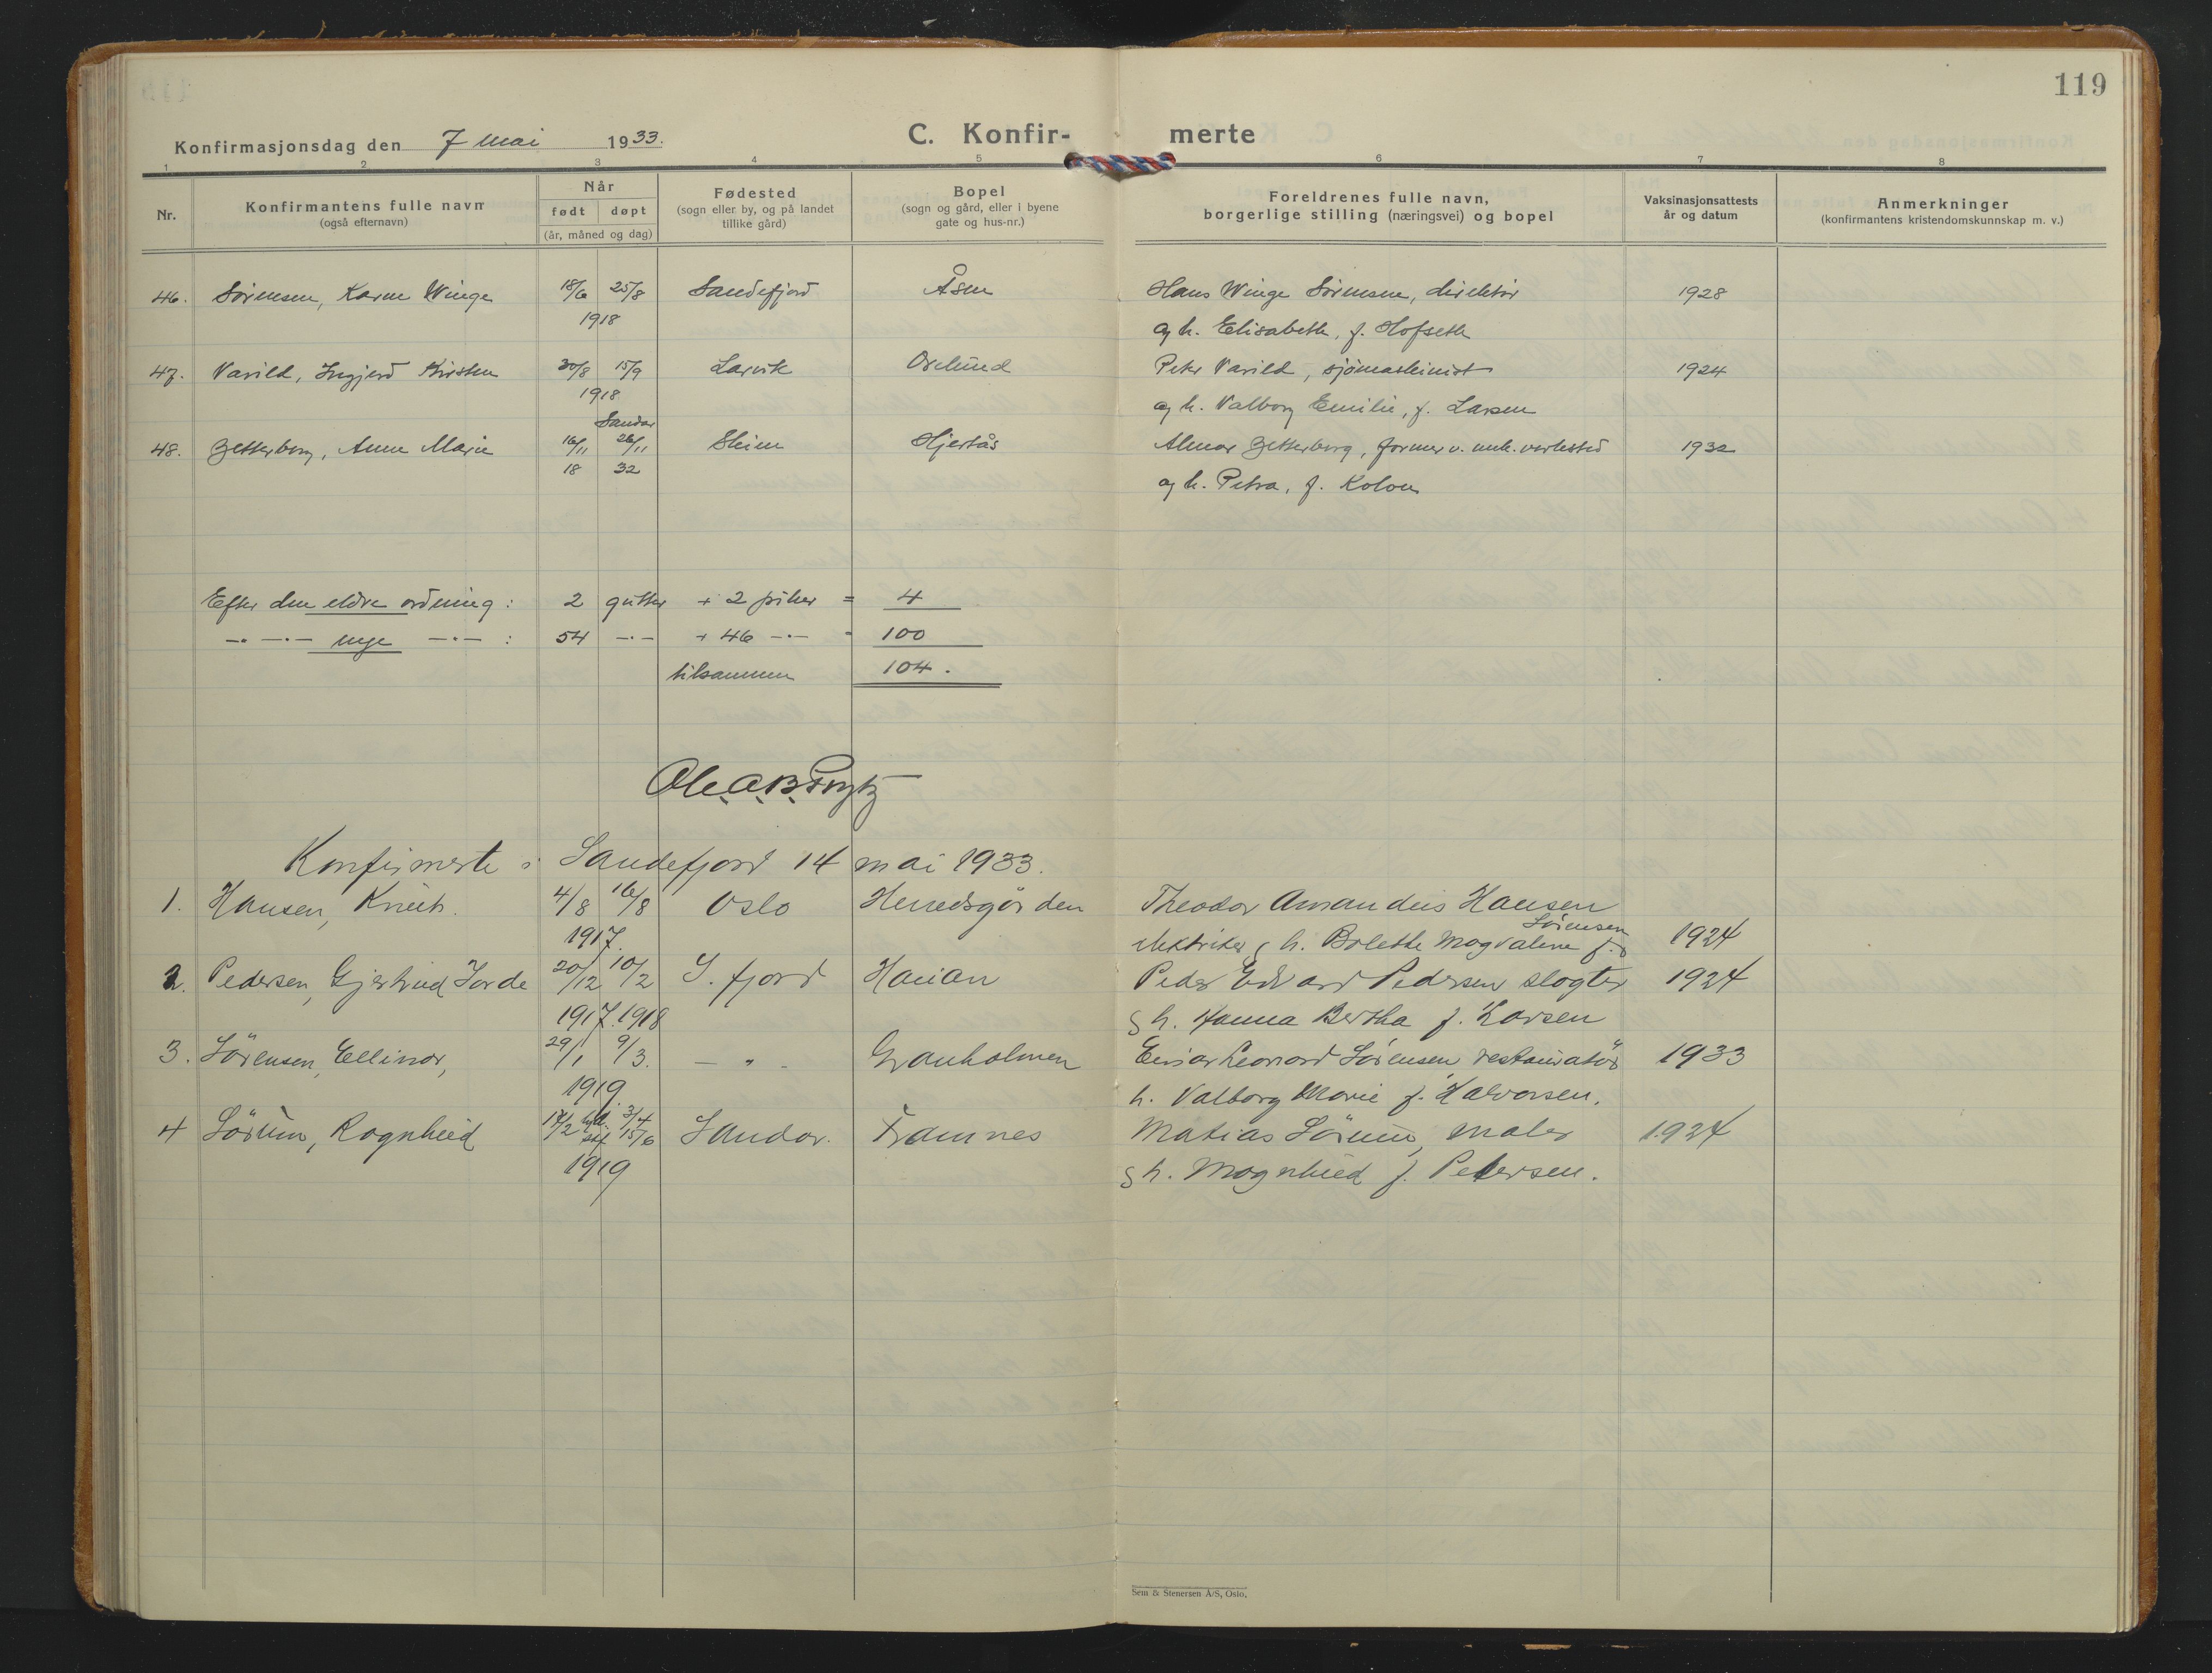 119
Konfirmasjonsdag den 7 mai 1933.
C. Konfir- merte
1 2 3 4 5 6 7 8
Nr.
Konfirmantens fulle navn
(også efternavn)
Når
født døpt
(år, måned og dag)
Fødested
(sogn eller by, og på landet
tillike gård)
Bopel
(sogn og gård, eller i byene
gate og hus-nr.)
Foreldrenes fulle navn,
borgerlige stilling (næringsvei) og bopel
Vaksinasjonsattests
år og datum
Anmerkninger
(konfirmantens kristendomskunnskap m. v.)
46. Sørensen, Karen Winge 18/6 25/8 Sandefjord Åsen Hans Winge Sørensen, direktør 1928
1918 og h. Elisabeth, f. Hofseth
47. Varild, Ingjerd Kirsten 30/8 15/9 Larvik Oslund Peter Varild, sjømaskinist 1924
1918 og h. Valborg Emilie, f. Larsen
Sandar
48. Zetterborg, Anne Marie 16/11 26/11 Skien Hjertås Almar Zetterborg, former v. mek. verksted 1932
18 32 og h. Petra, f. Kolon
Efter den eldre ordning: 2 gutter + 2 piker = 4
-·- -·- nye -·- : 54 -·- + 46 -·- = 100
tilsammen 104.
Konfirmerte i Sandefjord 14 mai 1933.
1. Hansen, Knut. 4/8 16/8 Oslo Herredsgården Theodor Amandus Hansen
1917. elektriker & h. Bolette Magdalene f. Sørensen 1924
2. Pedersen, Gjertrud Jorde 20/12 10/2 S. fjord Hauan Peder Edvard Pedersen slagter 1924
1917. 1918 & h. Hanna Bertha f. Larsen
3. Sørensen, Ellinor, 29/1 9/3. — " - Granholmen Einar Leonard Sørensen, restauratør 1933
1919. h. Valborg Marie f. Halvorsen.
4 Sørum, Ragnhild 17/2 hjd. 3/4 stf 15/6 Sandar. Framnes Matias Sørum, maler 1924
1919 & h. Magnhild f. Petersen.
Sem & Stenersen A/S, Oslo.